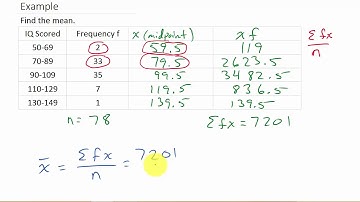 Example
Find the mean.
IQ Scored Frequency f x (midpoint) x f
50-69 2 59.5 119
70-89 33 79.5 2623.5
90-109 35 99.5 3482.5
110-129 7 119.5 836.5
130-149 1 139.5 139.5
Σfx / n
n = 78 Σfx = 7201
x̄ = Σfx / n = 7201